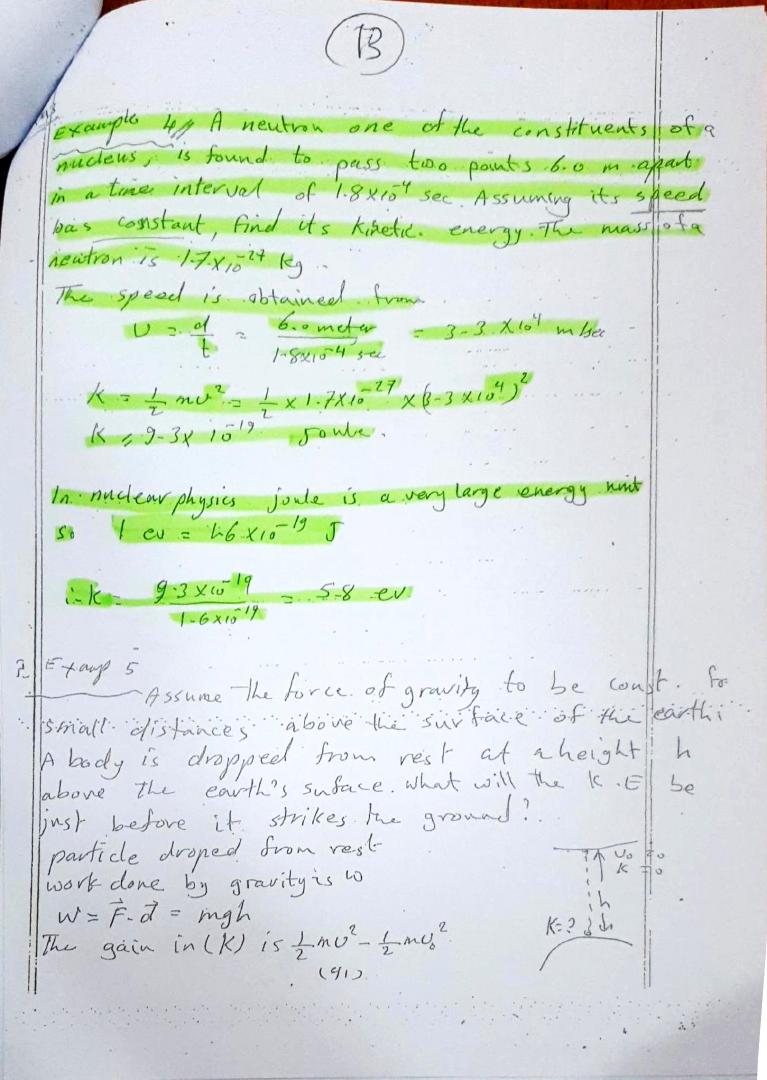 B
Example 4// A neutron one of the constituents of a
nucleus, is found to pass two points 6.0 m apart
in a time interval of 1.8×10⁻⁴ sec. Assuming its speed
was constant, find its kinetic energy. The mass of a
neutron is 1.7×10⁻²⁷ kg.
The speed is obtained from
υ = d/t = 6.0 meter / 1.8×10⁻⁴ sec = 3.3 × 10⁴ m/sec
K = 1/2 mυ² = 1/2 × 1.7×10⁻²⁷ × (3.3 ×10⁴)²
K = 9.3 × 10⁻¹⁹ Joule.
In nuclear physics joule is a very large energy unit
so 1 ev = 1.6 × 10⁻¹⁹ J
∴ k = 9.3 × 10⁻¹⁹ / 1.6×10⁻¹⁹ = 5.8 ev
Examp 5
Assume the force of gravity to be const. for
small distances above the surface of the earth:
A body is dropped from rest at a height h
above the earth's suface. what will the K.E be
just before it strikes the ground?
particle droped from rest
υ₀ = 0
K = 0
work done by gravity is w
h
W = F⃗. d⃗ = mgh
K = ?
The gain in (K) is 1/2 mυ² - 1/2 mυ₀²
(91)